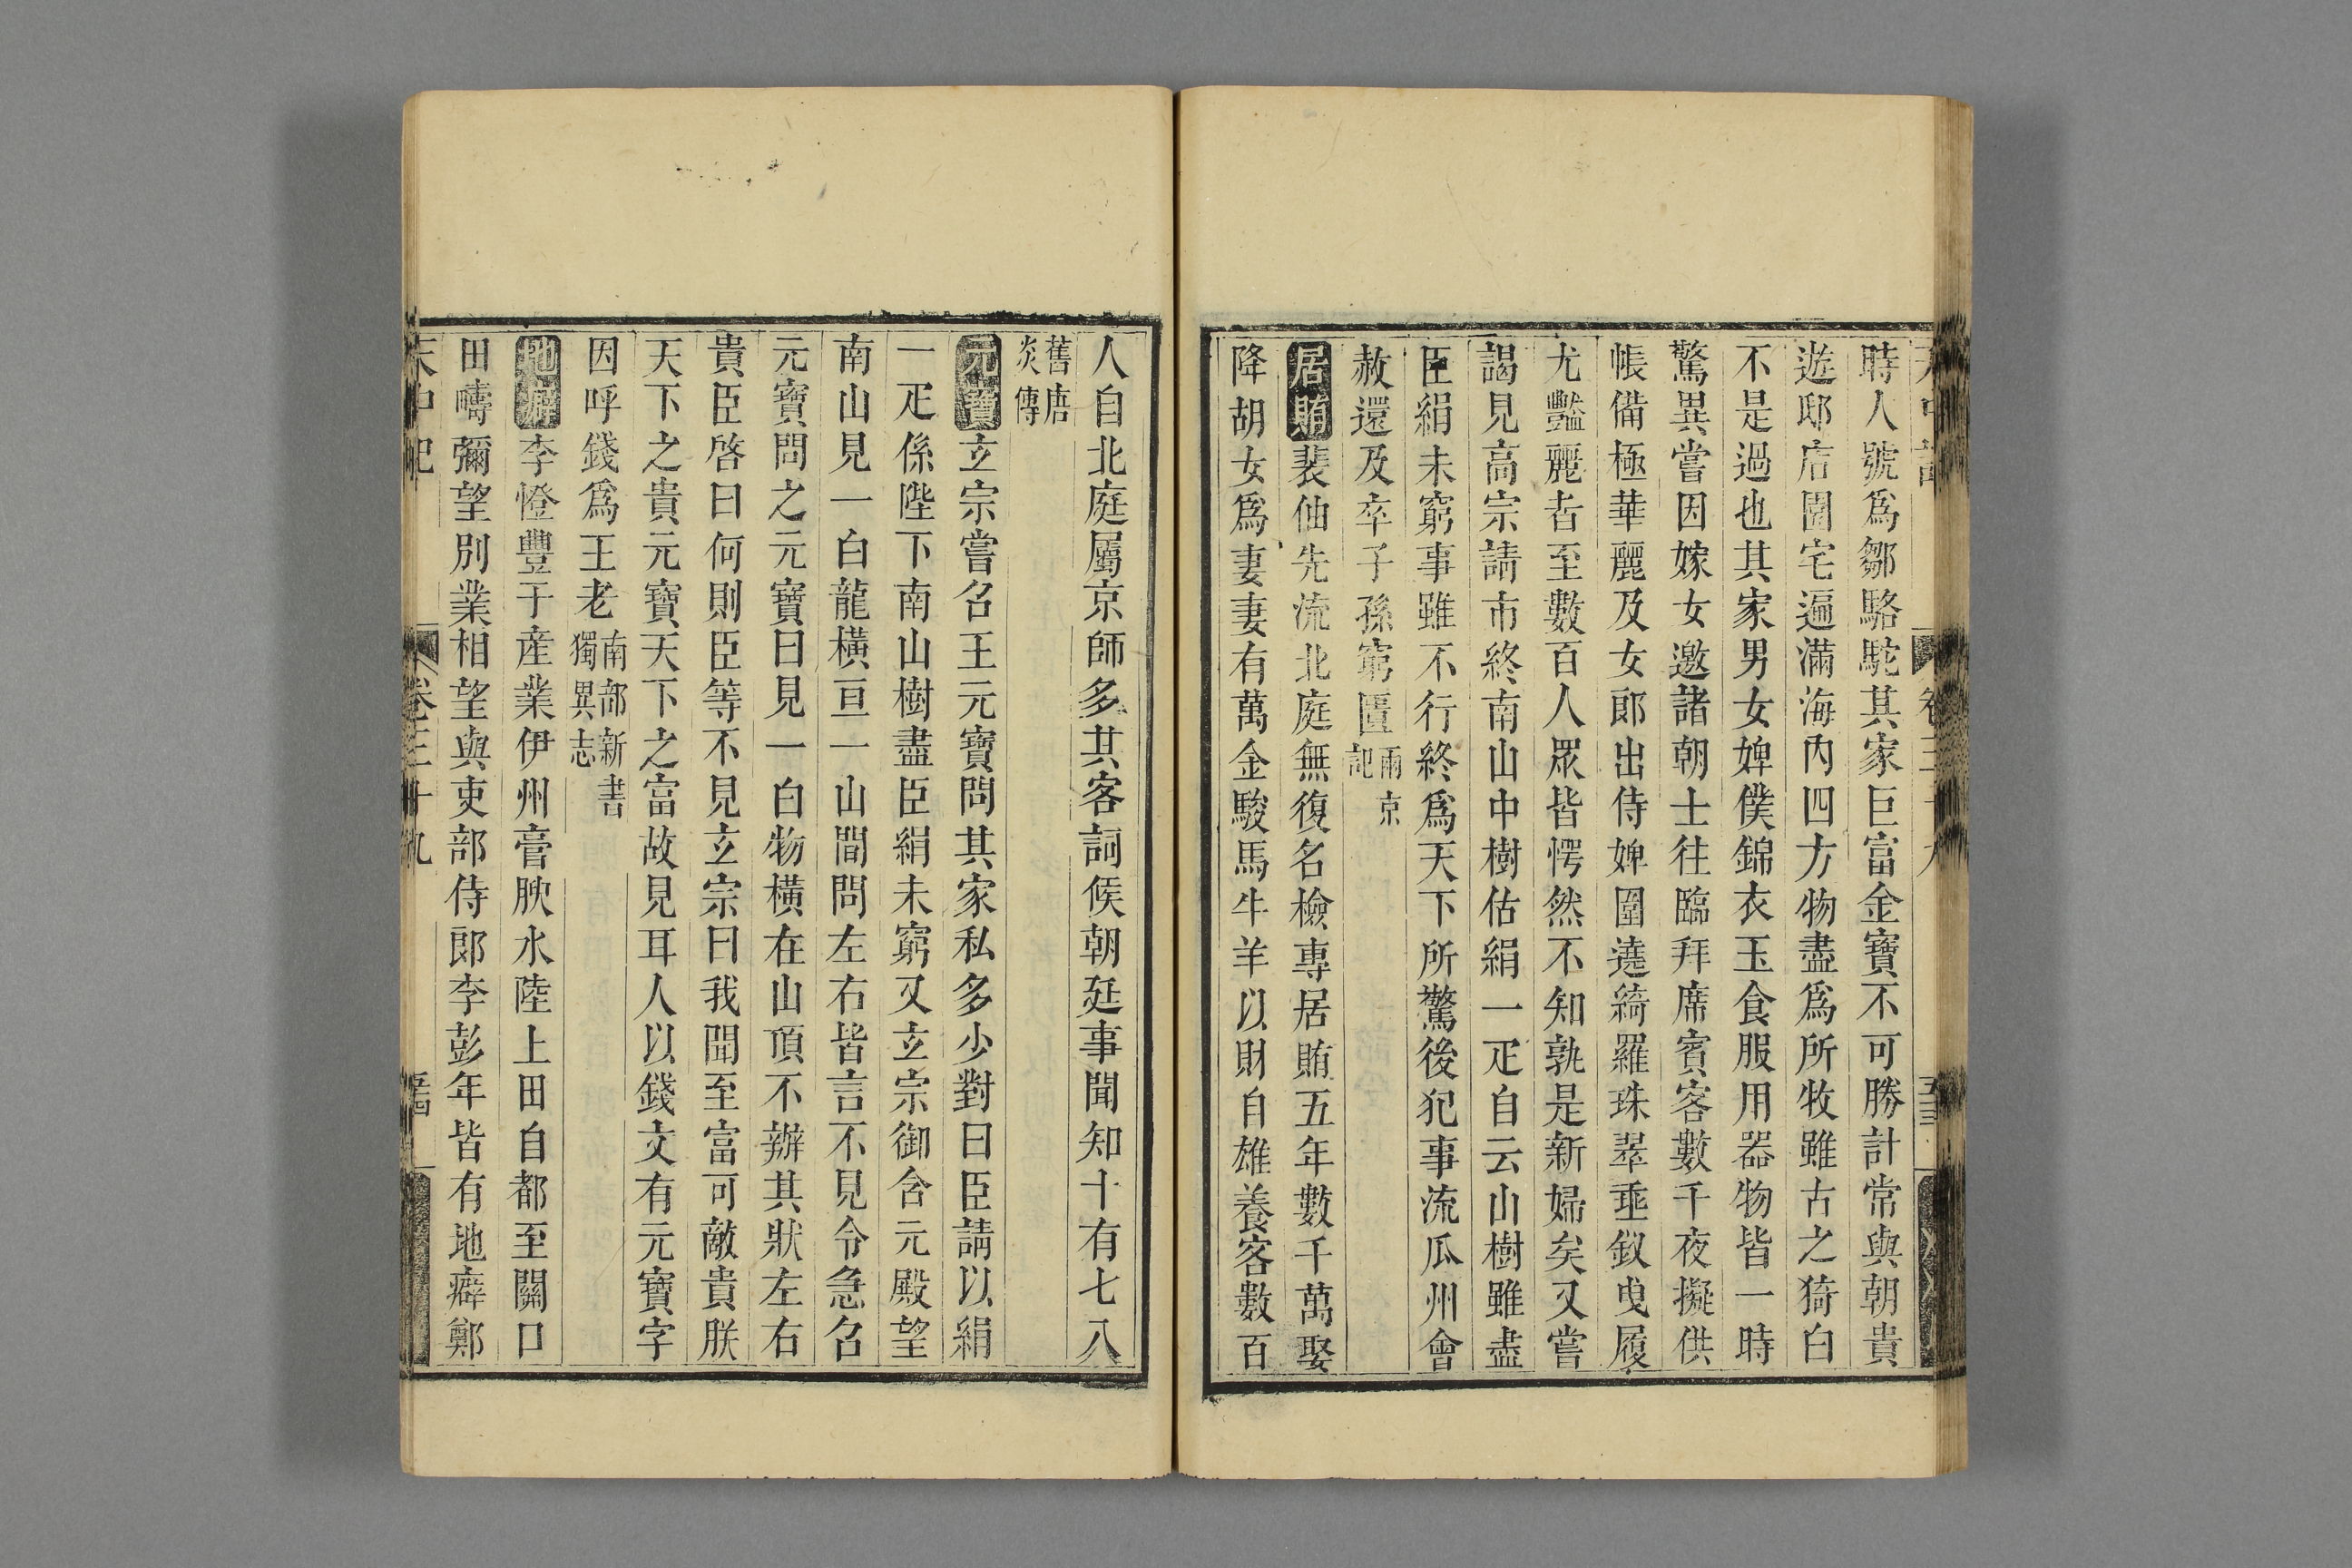 時人號爲鄒駱駝其家巨富金寶不可勝計常與朝貴
遊邸店園宅遍滿海内四方物盡爲所牧雖古之猗白
不是過也其家男女婢僕錦衣玉食服用器物皆一時
驚異嘗因嫁女邀諸朝士往臨拜席賓客數千夜擬供
帳備極華麗及女郎出侍婢圍遶綺羅珠翠垂釵曳履
尤豔麗者至數百人眾皆愕然不知孰是新婦矣又嘗
謁見高宗請市終南山中樹估絹一疋自云山樹雖盡
臣絹未窮事雖不行終爲天下所驚後犯事流瓜州會
赦還及卒子孫窮匱兩京
記
居賄裴伷先流北庭無復名檢專居賄五年數千萬娶
降胡女爲妻妻有萬金駿馬牛羊以財自雄養客數百
人自北庭屬京師多其客詗候朝廷事聞知十有七八
舊唐
炎傳
元寶玄宗嘗名王元寶問其家私多少對曰臣請以絹
一疋係陛下南山樹盡臣絹未窮又玄宗御含元殿望
南山見一白龍横亘一山間問左右皆言不見令急召
元寶問之元寶曰見一白物横在山頂不辦其狀左右
貴臣啓曰何則臣等不見玄宗曰我聞至富可敵貴朕
天下之貴元寶天下之富故見耳人以錢文有元寶字
因呼錢爲王老南部新書
獨異志
地癖李憕豐于産業伊州膏腴水陸上田自都至闗口
田疇彌望別業相望與吏部侍郎李彭年皆有地癖鄭
天中記
卷三十九
五十四